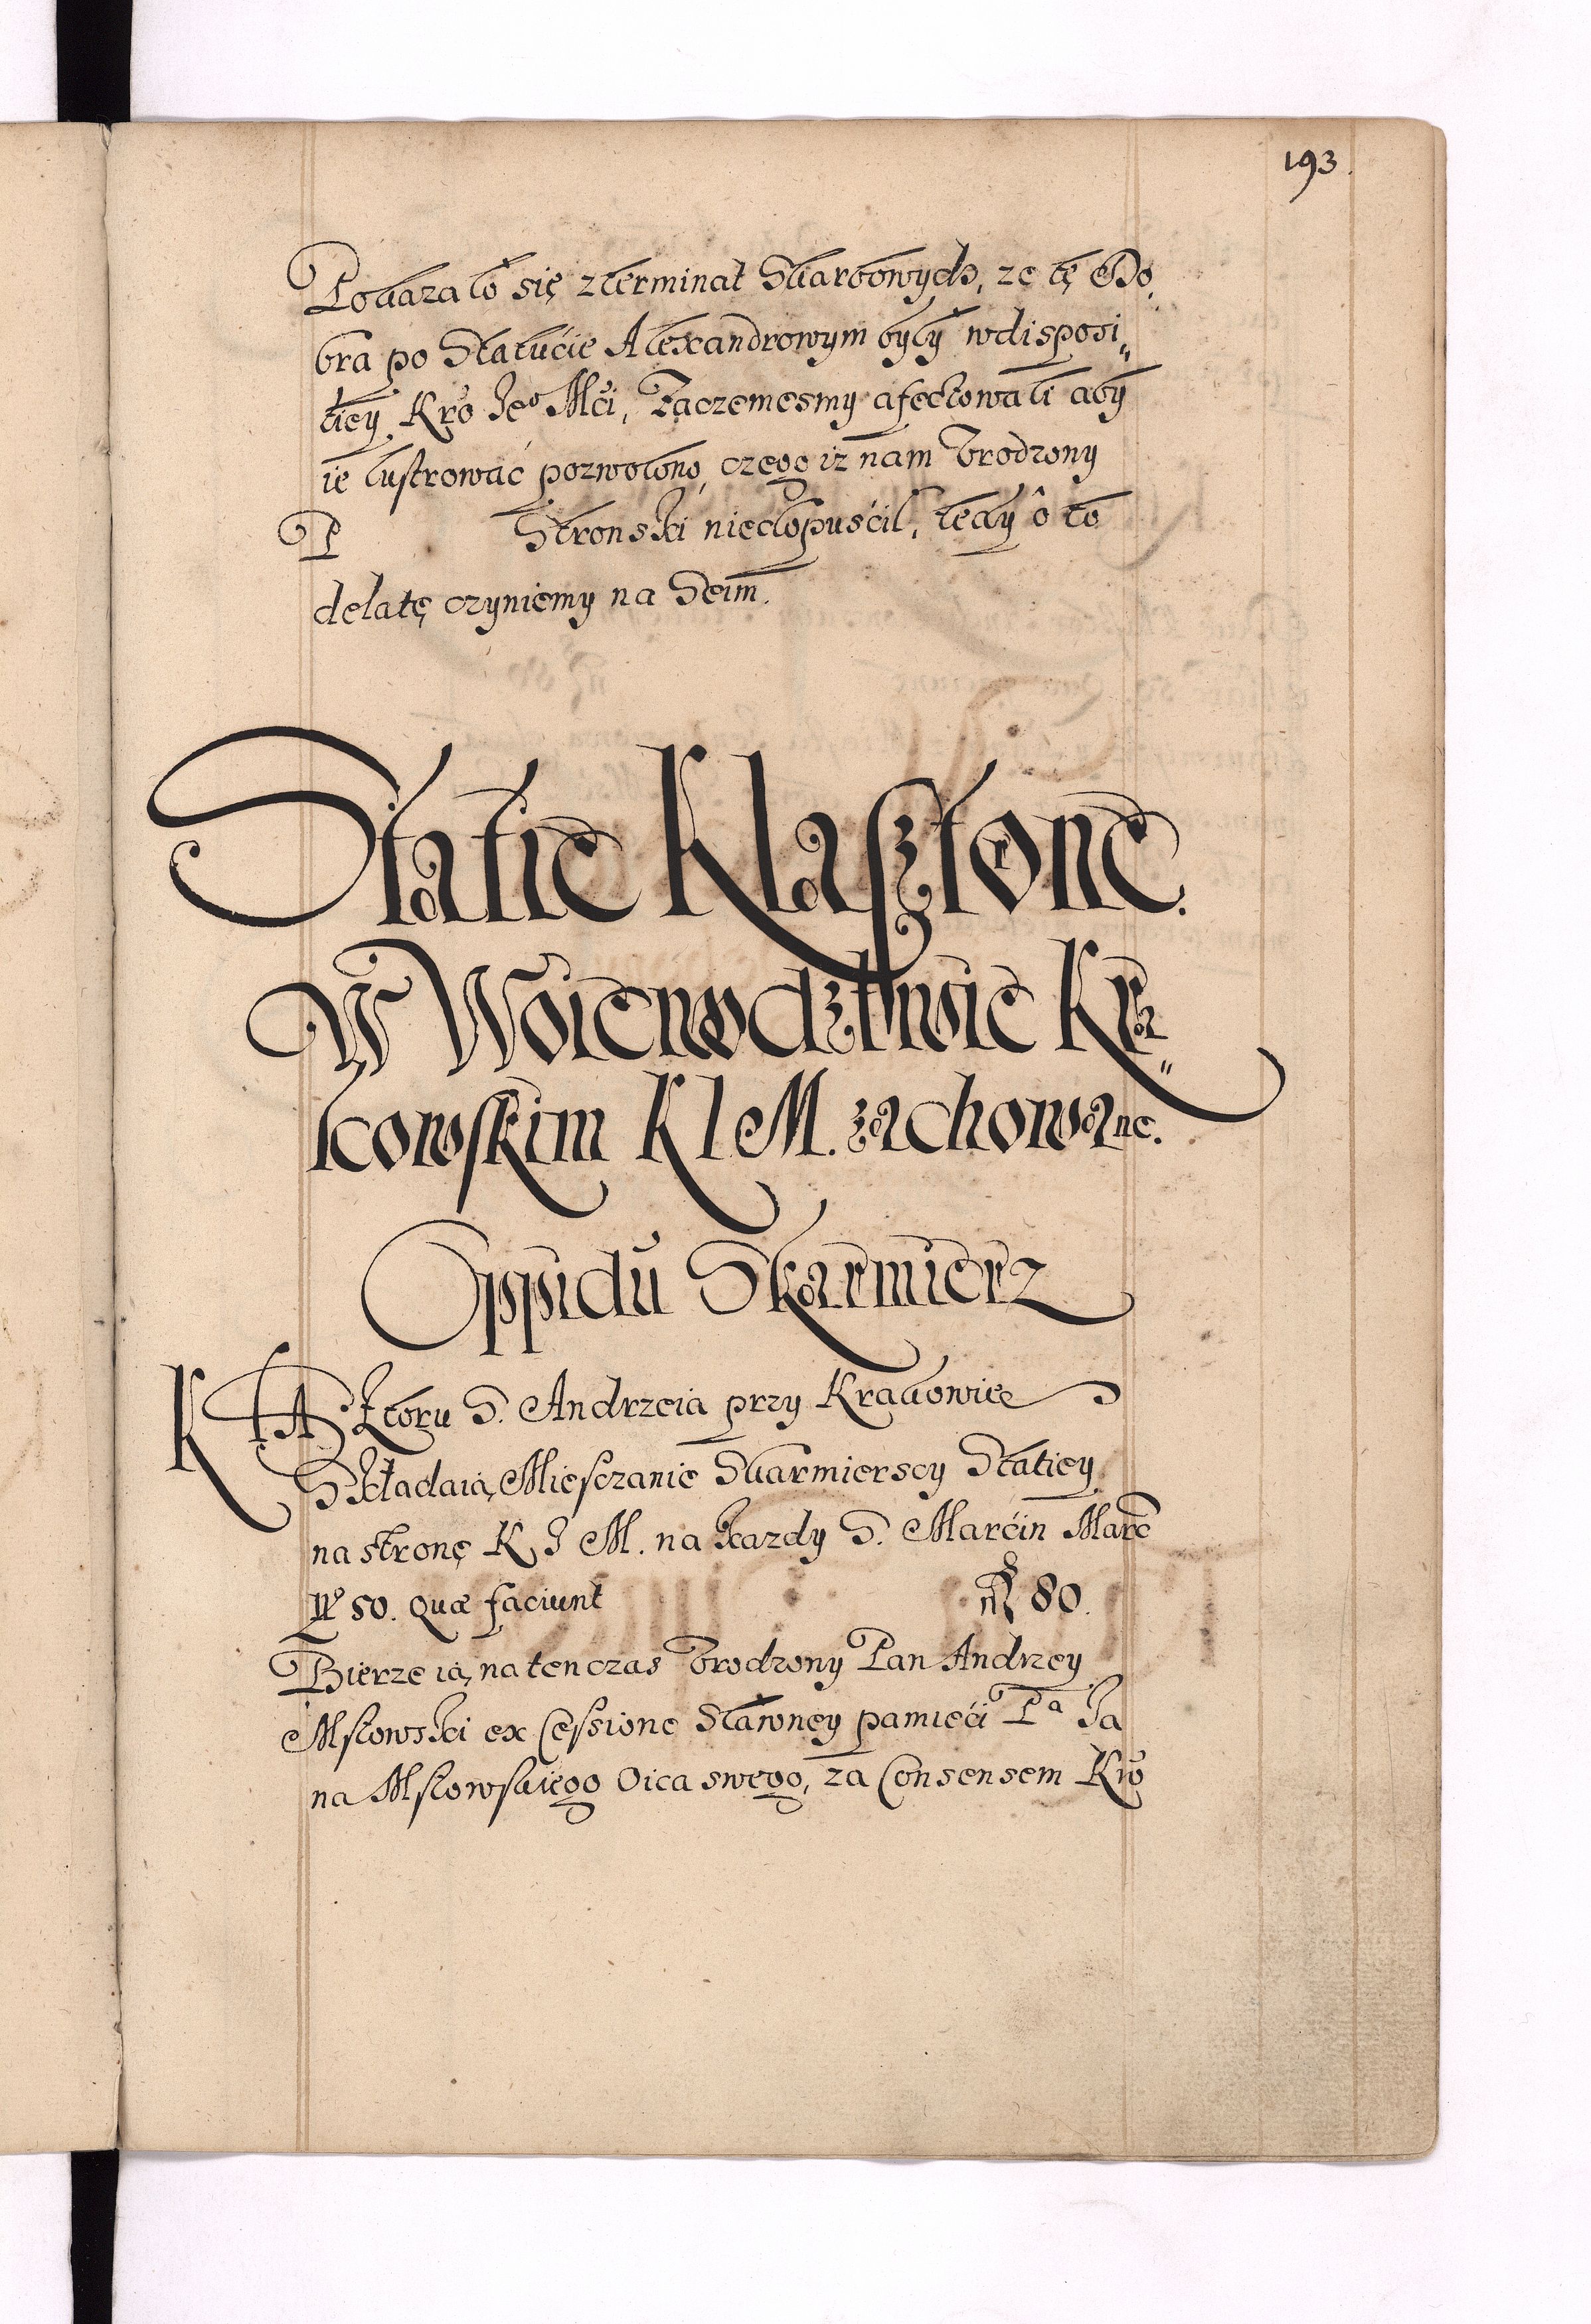 193.
Pokazało się z terminat Skarbowych, ze tę Do„
bra po Statućie Alexandrowym były w disposi„
tiey Kro Jeo Mći, Zaczemesmy afectowali aby
ie lustrować pozwolono, czego iz nam Vrodzony
P Stronski niedopuśćił, tedy ô to
delatę czyniemy na Seim.
Statie Klasztorne
W Woiewodztwie Kra„
kowskim K I M. zachowane.
Oppidū Skarmierz
KLASztoru S. Andrzeia przy Krakowie
Składaią Miesczanie Skarmierscy Statiey
na stronę K J M. na kazdy S. Marćin Marc
50. quæ faciunt 80.
Bierze ią na ten czas Vrodzony Pan Andrzey
Mstowski ex Cessione Sławney pamieći Pa Ja
na Mstowskiego Oica swego, za Consensem Kro